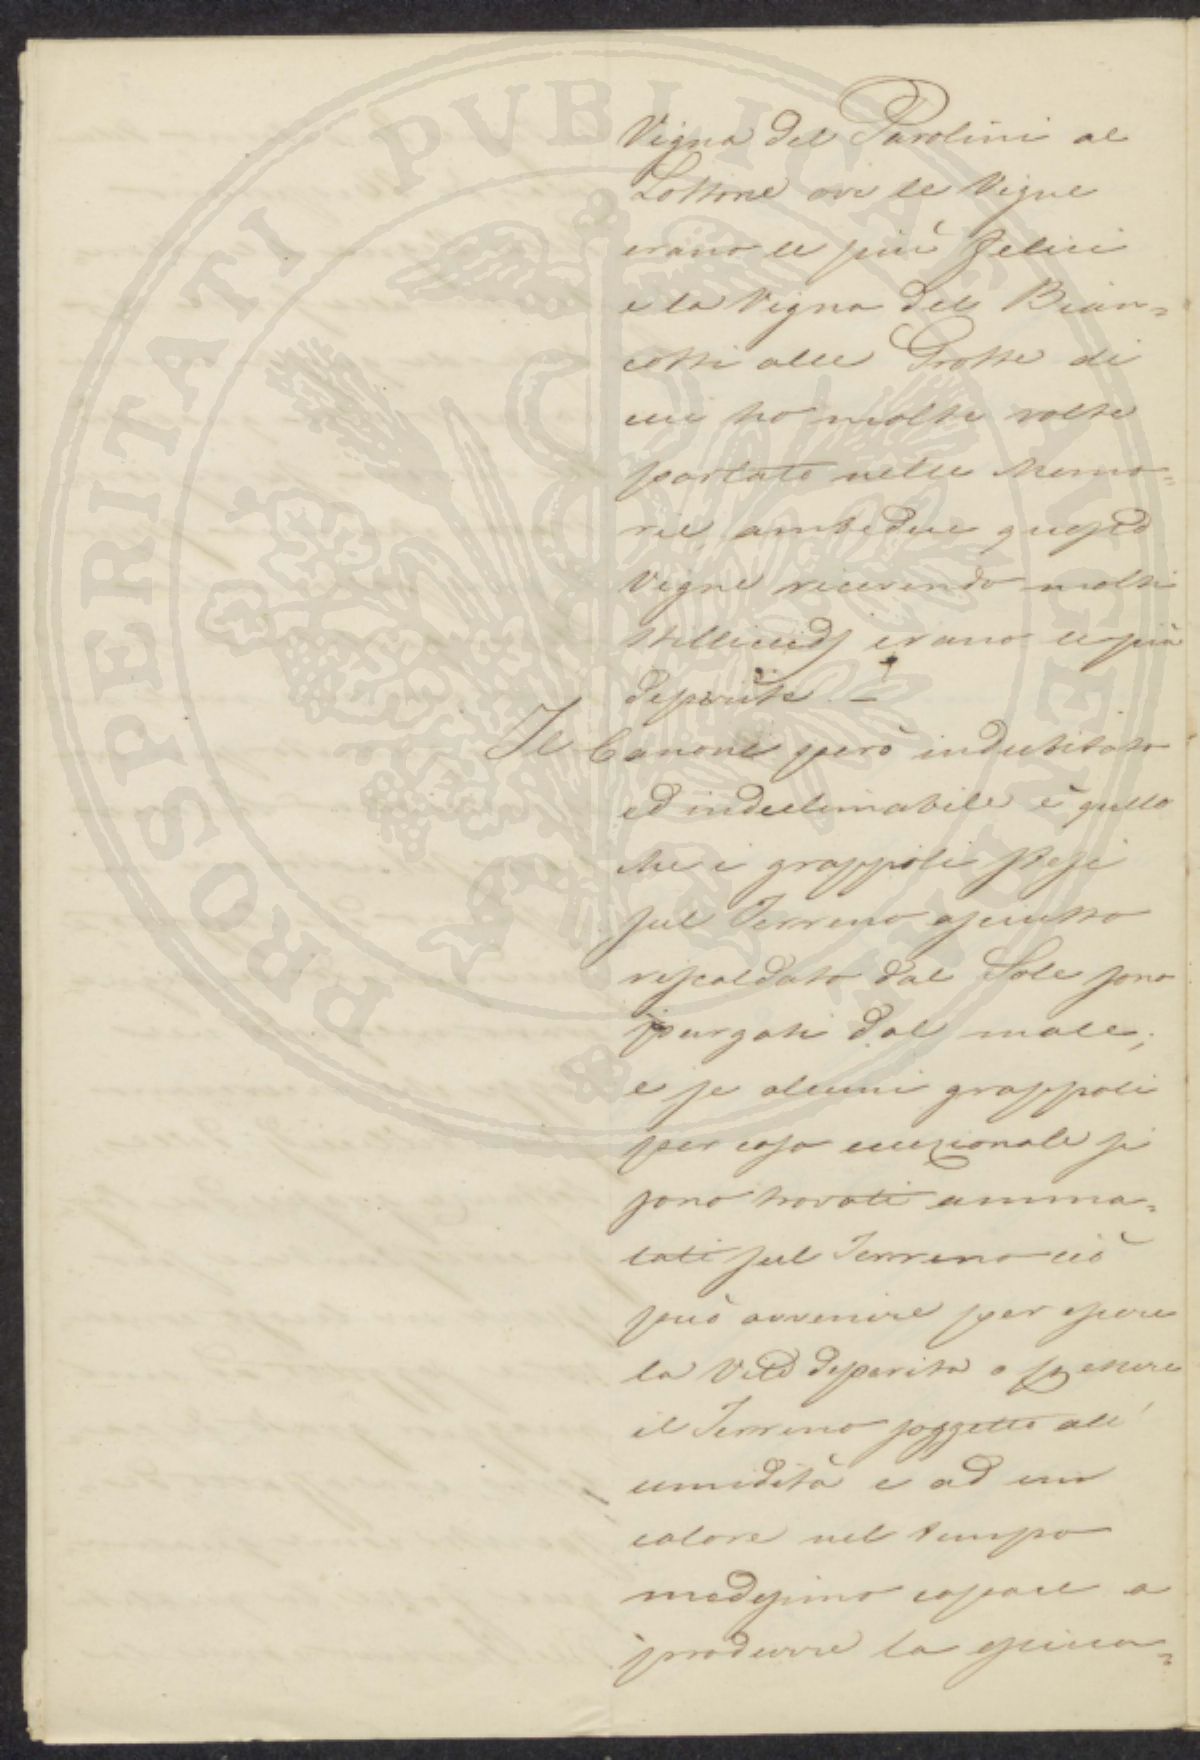 Vigna del Parolini al
Lottone ove le Vigne
erano le più felici
e la Vigna del Bian=
cotti alle Grotte di
cui ho molte volte
parlato nelle Memo=
rie, ambedue queste
Vigne ricevendo molti
stillicidj erano le più
deperite. –
Il Canone però indubitato
ed indeclinabile è quello
che i grappoli stesi
sul Terreno asciutto
riscaldato dal Sole sono
spurgati dal male;
e se alcuni grappoli
per caso eccezionale si
sono trovati amma=
lati sul Terreno ciò
può avvenire per essere
la Vite deperita o per essere
il Terreno soggetto all'
umidità e ad un
calore nel tempo
medesimo capace a
produrre la
PROSPERITATI PUBLICAE AUGENDAE